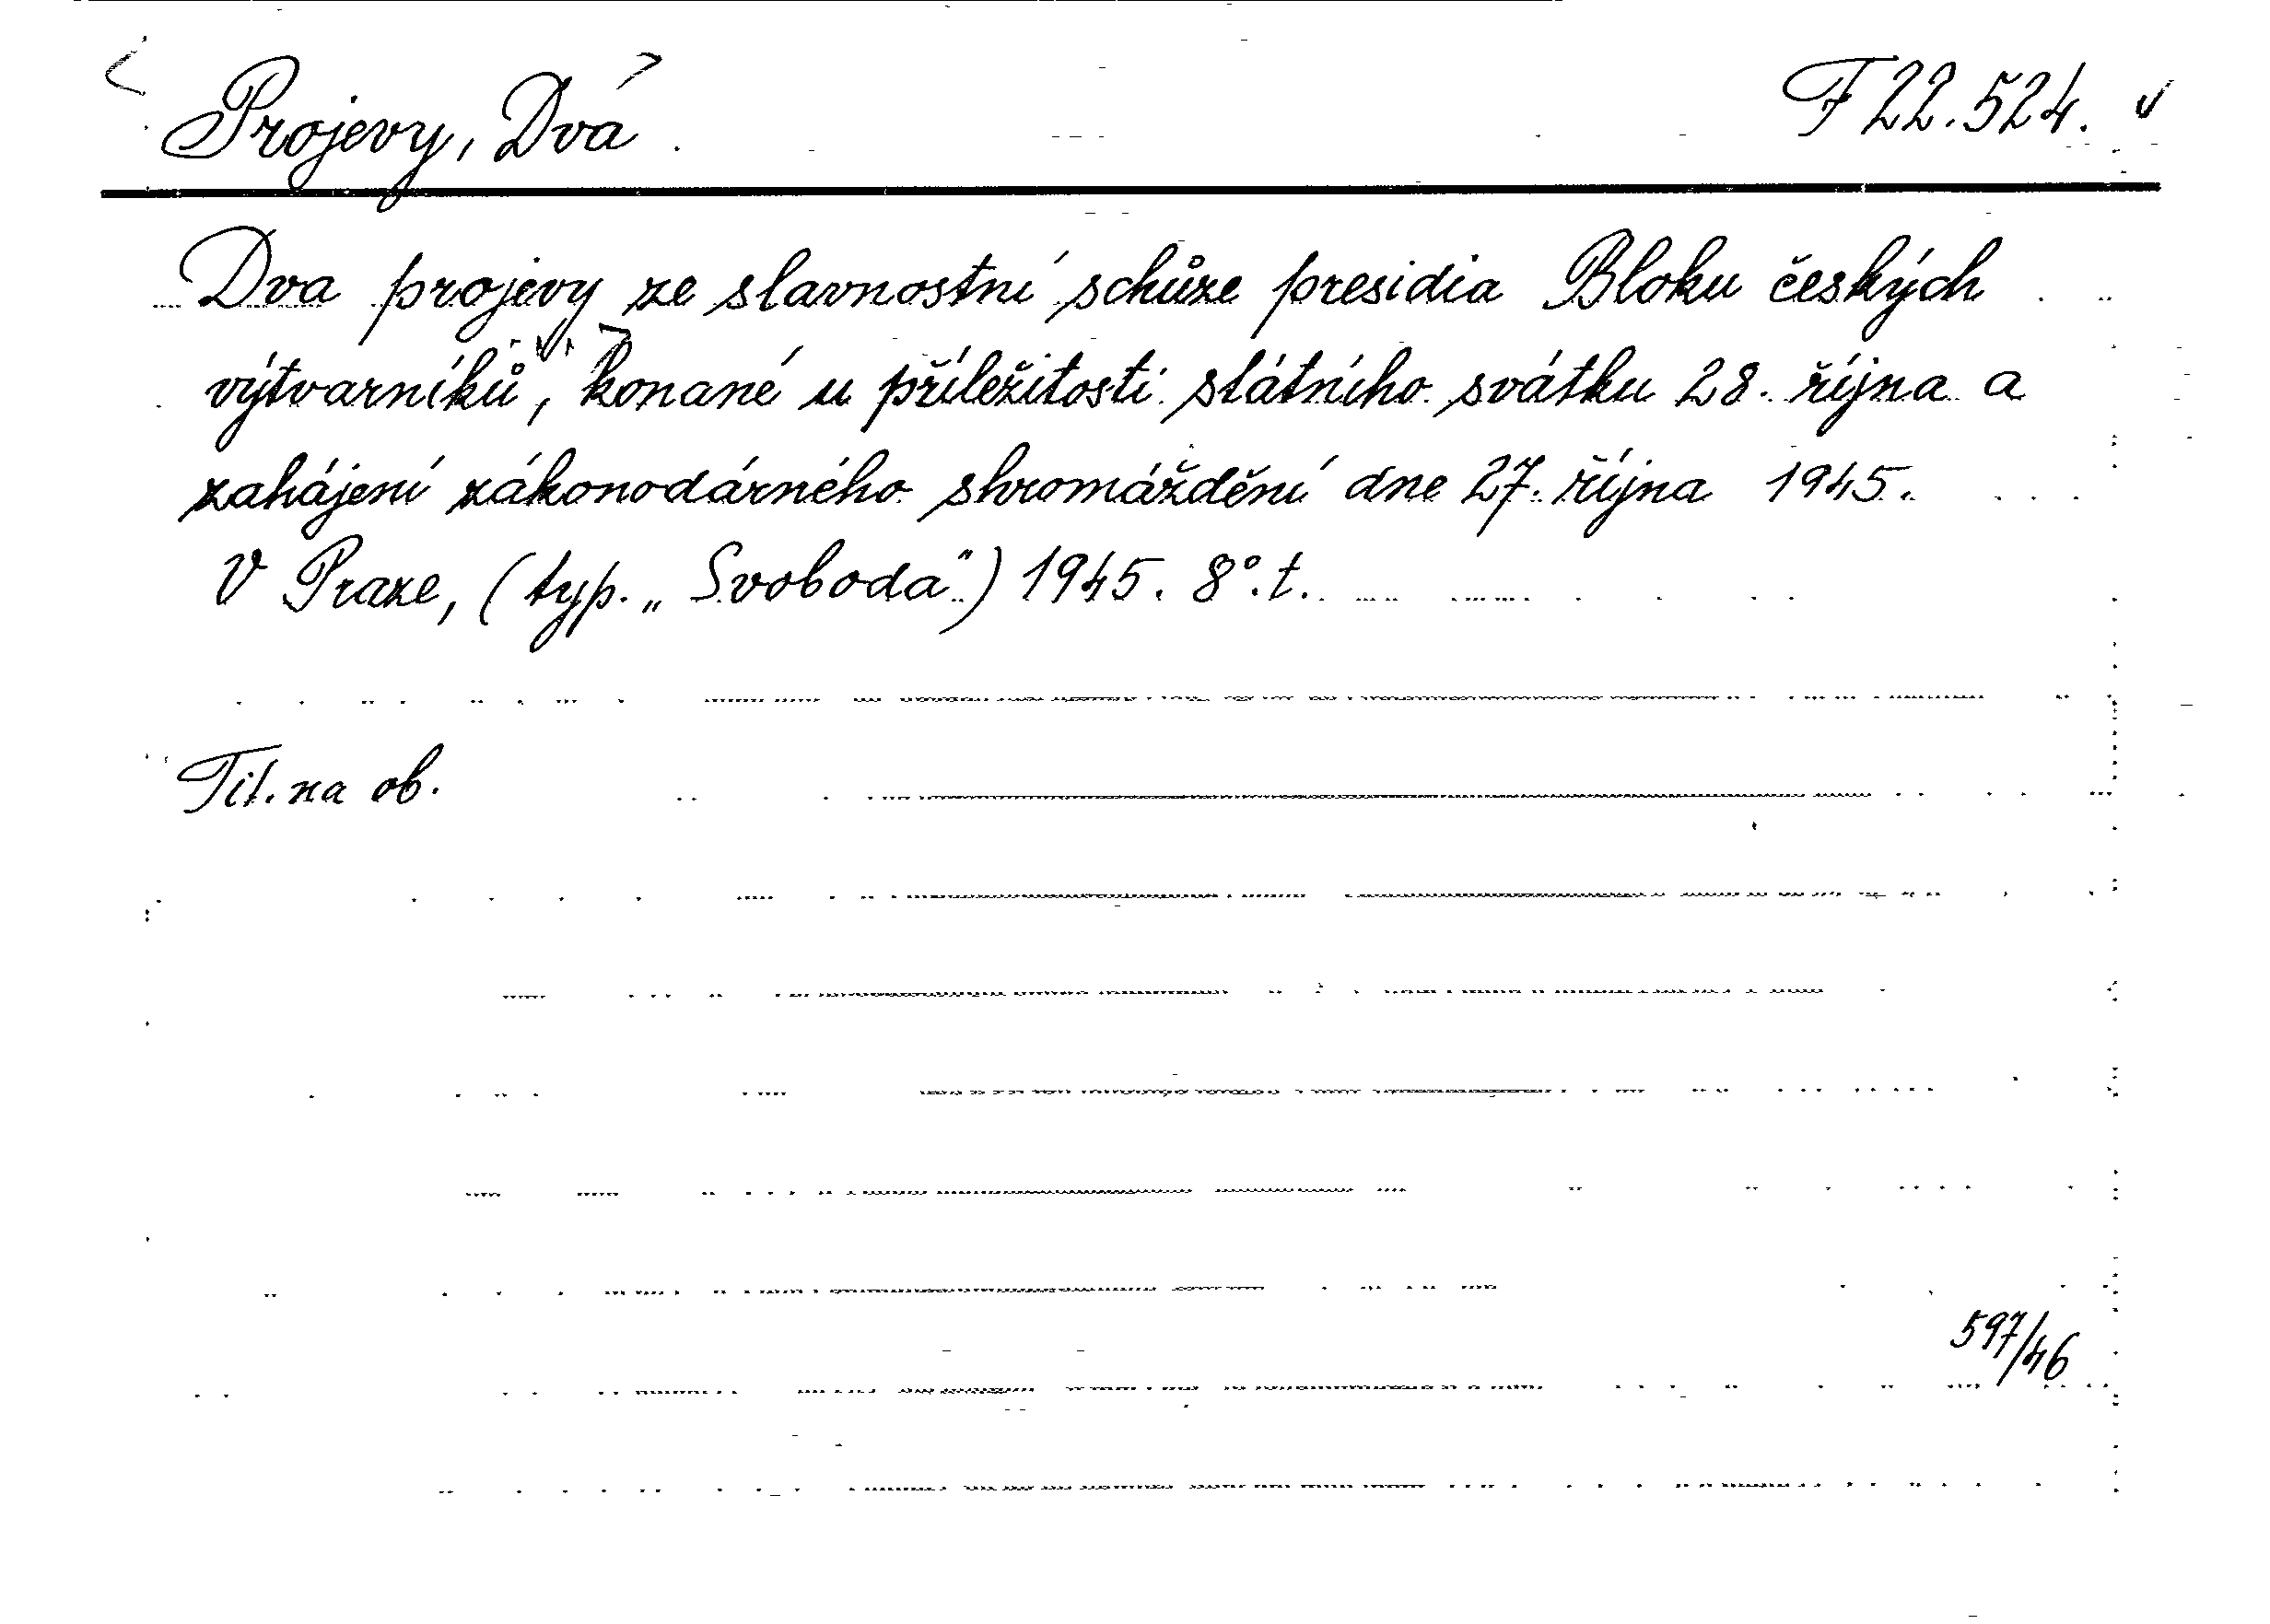 <Projevy, Dva> F 22.524. v
Dva projevy ze slavnostní schůze presidia Bloku českých
výtvarníků, konané u příležitosti státního svátku 28. října a
zahájení zákonodárného shromáždění dne 27. října 1945.
V Praze, (typ. „Svoboda") 1945. 8°. t.
Tit. na ob.
597/46